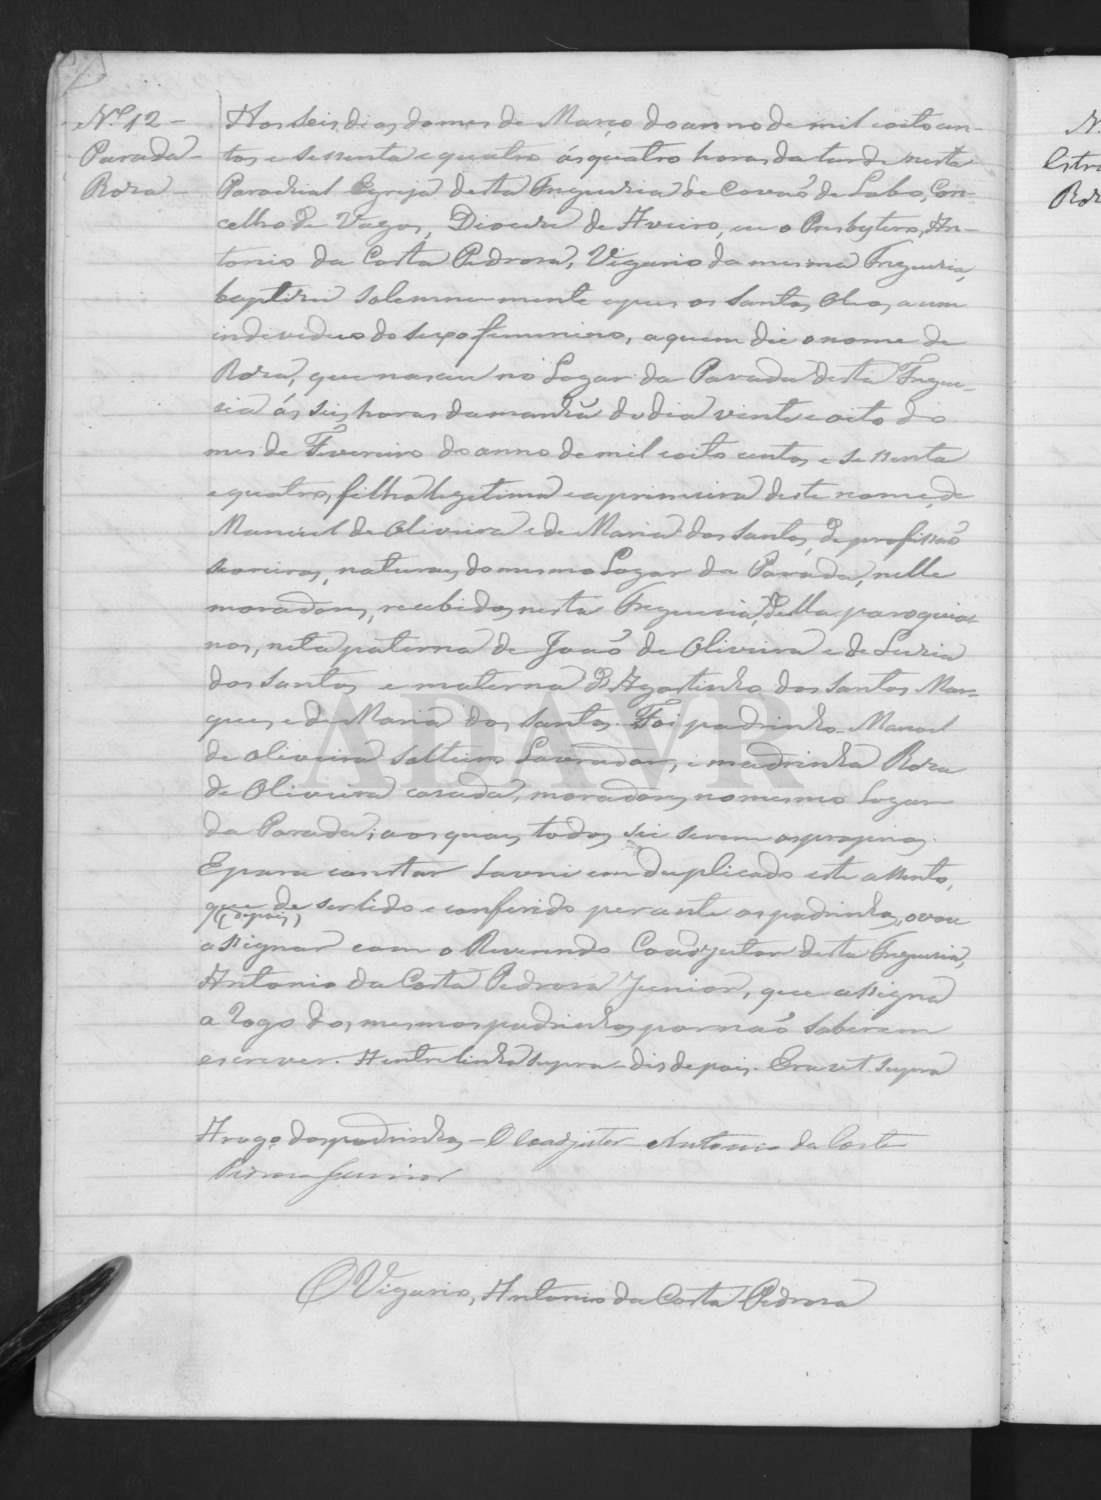 Nº 12 -
Parada -
Roza -
Aos seis dias do mes de Março do anno de mil oito cen-
tos e sessenta e quatro ás quatro horas da tarde nesta
Parochial Egreja desta Freguezia de Covaõ de Lobo, Con-
celho de Vagos, Diocese de Aveiro, eu o Presbytero, An-
tonio da Costa Pedroza, Vigario da mesma Freguezia,
baptizei solemnemente e puz os santos oleos, a um
individuo do sexo femenino, a quem dei o nome de
Roza, que nasceu no Logar da Parada desta Fregue-
zia ás seis horas da manhã do dia vinte e oito do
mes de Fevereiro do anno de mil oito centos e sessenta
e quatro, filha legitima e a primeira deste nome, de
Manuel de Oliveira e de Maria dos Santos, de profissaõ
seareiros, naturaes do mesmo Logar da Parada, nelle
moradores, recebidos nesta Freguezia, della paroquia-
nos, neta paterna de Joaõ de Oliveira e de Luzia
dos Santos e materna de Agostinho dos Santos Mar-
ques e de Maria dos Santos. Foi padrinho Manoel
de Oliveira solteiro Lavrador, e madrinha Roza
de Oliveira cazada, moradores no mesmo Logar
da Parada; aos quaes todos sei serem os proprios.
E para constar lavrei em duplicado este assento,
que de ser lido e conferido perante os padrinhos, o vou
(depois)
assignar com o Reverendo Coadjutor desta Freguezia,
Antonio da Costa Pedroza Junior, que assigna
a rogo dos mesmos padrinhos por naõ saberem
escrever. A entrelinha supra diz depois. Era ut supra
A rogo dos padrinhos - O Coadjutor Antonio da Costa
Pedroza Junior
O Vigario, Antonio da Costa Pedroza
ADAVR
Nº
Estra
Roz